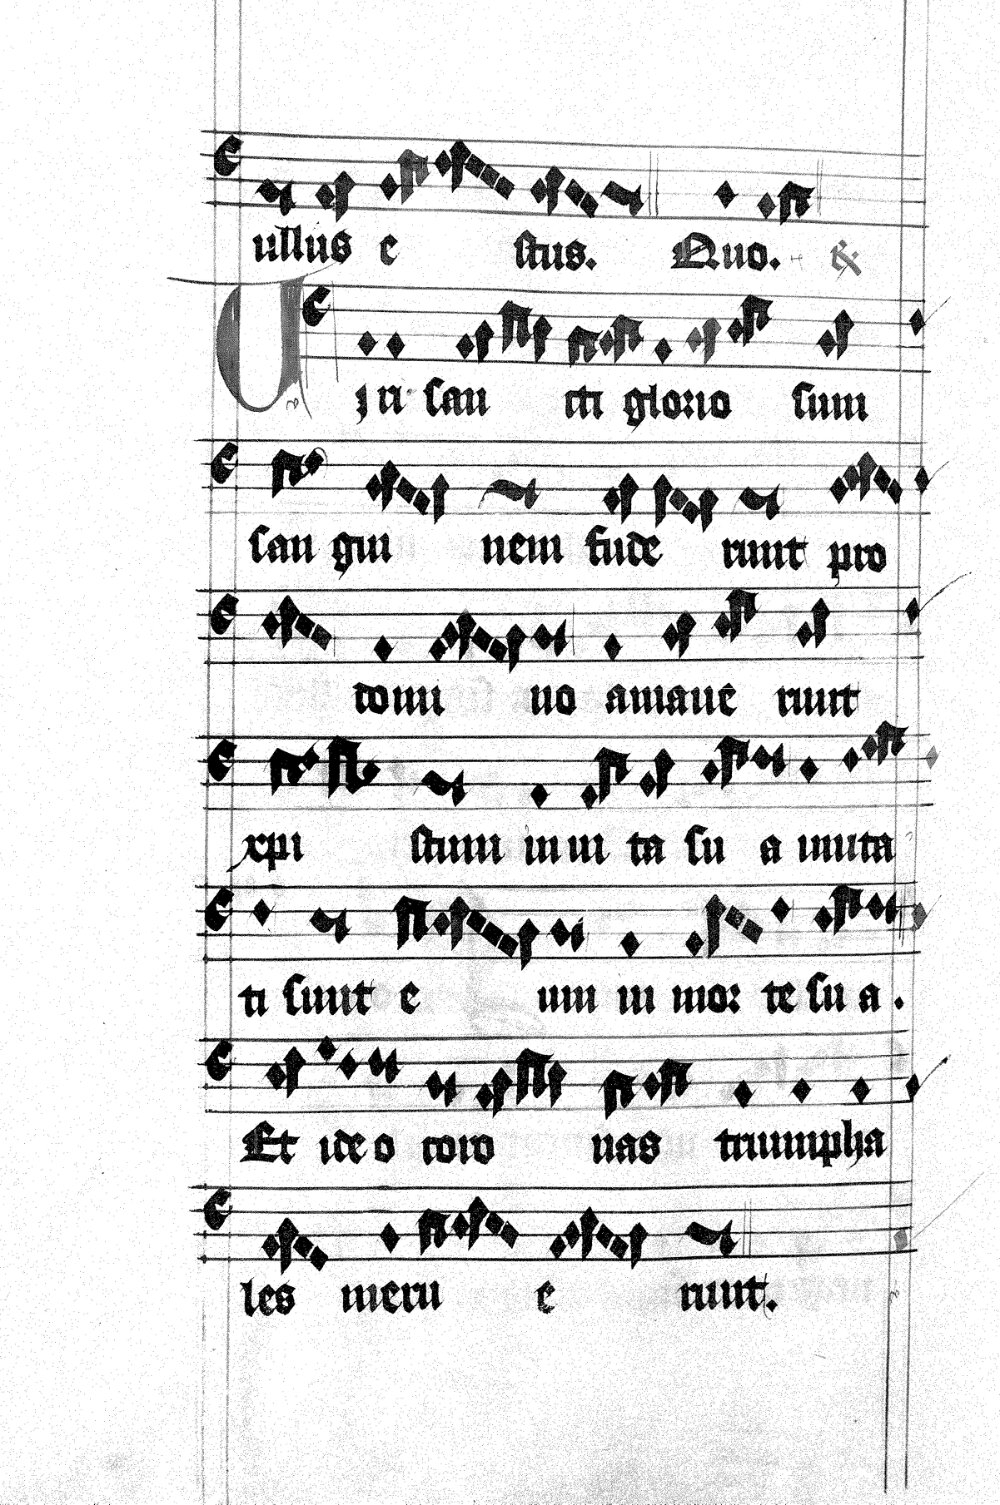 ullus e stus. Quo. &
Uiri san cti glorio sum
san gui nem fude runt pro
domi no amaue runt
xpi stum in ui ta su a imita
ti sunt e um in mor te su a.
Et ideo coro nas triumpha
les meru e runt.